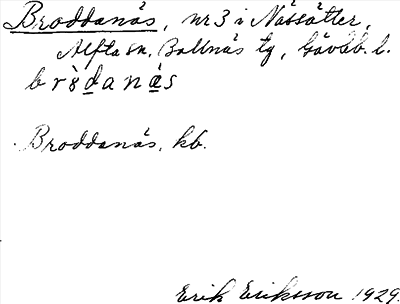 Broddanäs, nr 3 i Nässätter,
Alfta sn, Bollnäs tg, Gävleb. l.
Broddanäs, kb.
Erik Eriksson 1929.